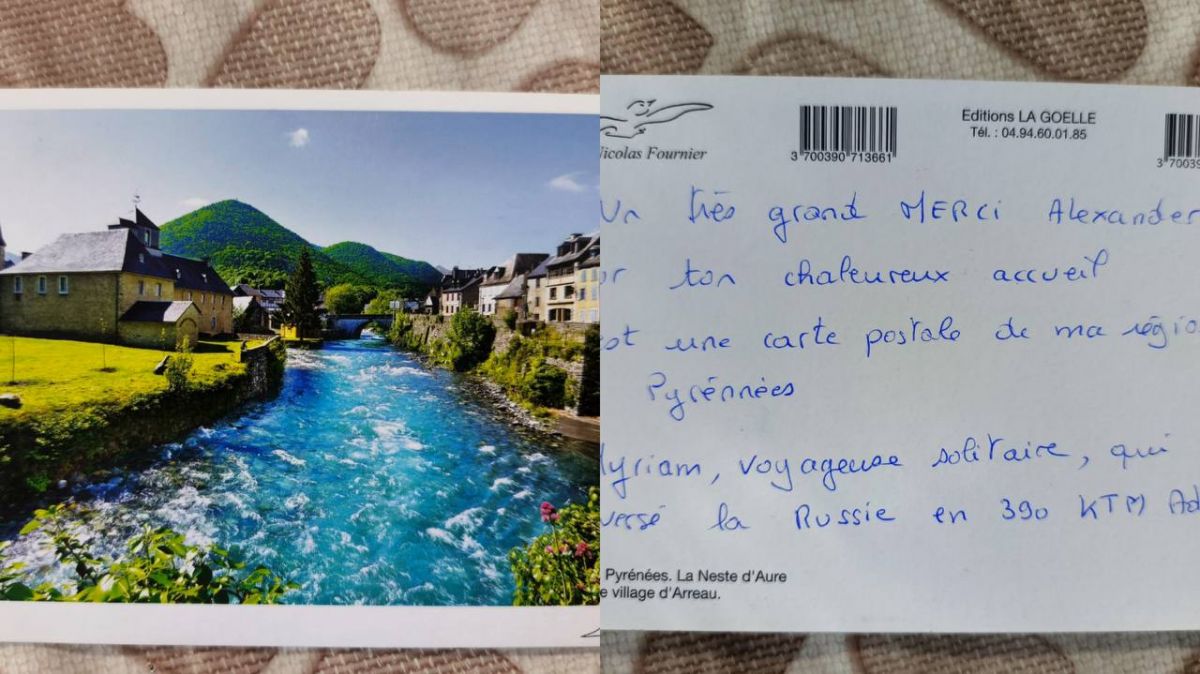 Nicolas Fournier
3 700390 713661
Editions LA GOELLE
Tél. : 04.94.60.01.85
3 70039
Un très grand MERCI Alexander
ton chaleureux accueil
une carte postale de ma régio
Pyrénnées
Myriam, voyageuse solitaire, qui
versé la Russie en 390 KTM Ad
Pyrénées. La Neste d'Aure
e village d'Arreau.